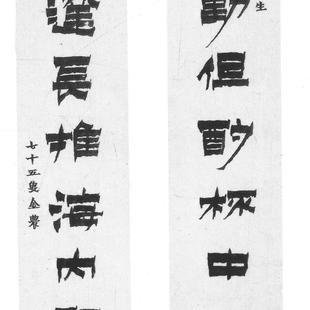 生
但酌杯中
長推海内
七十五叟金農